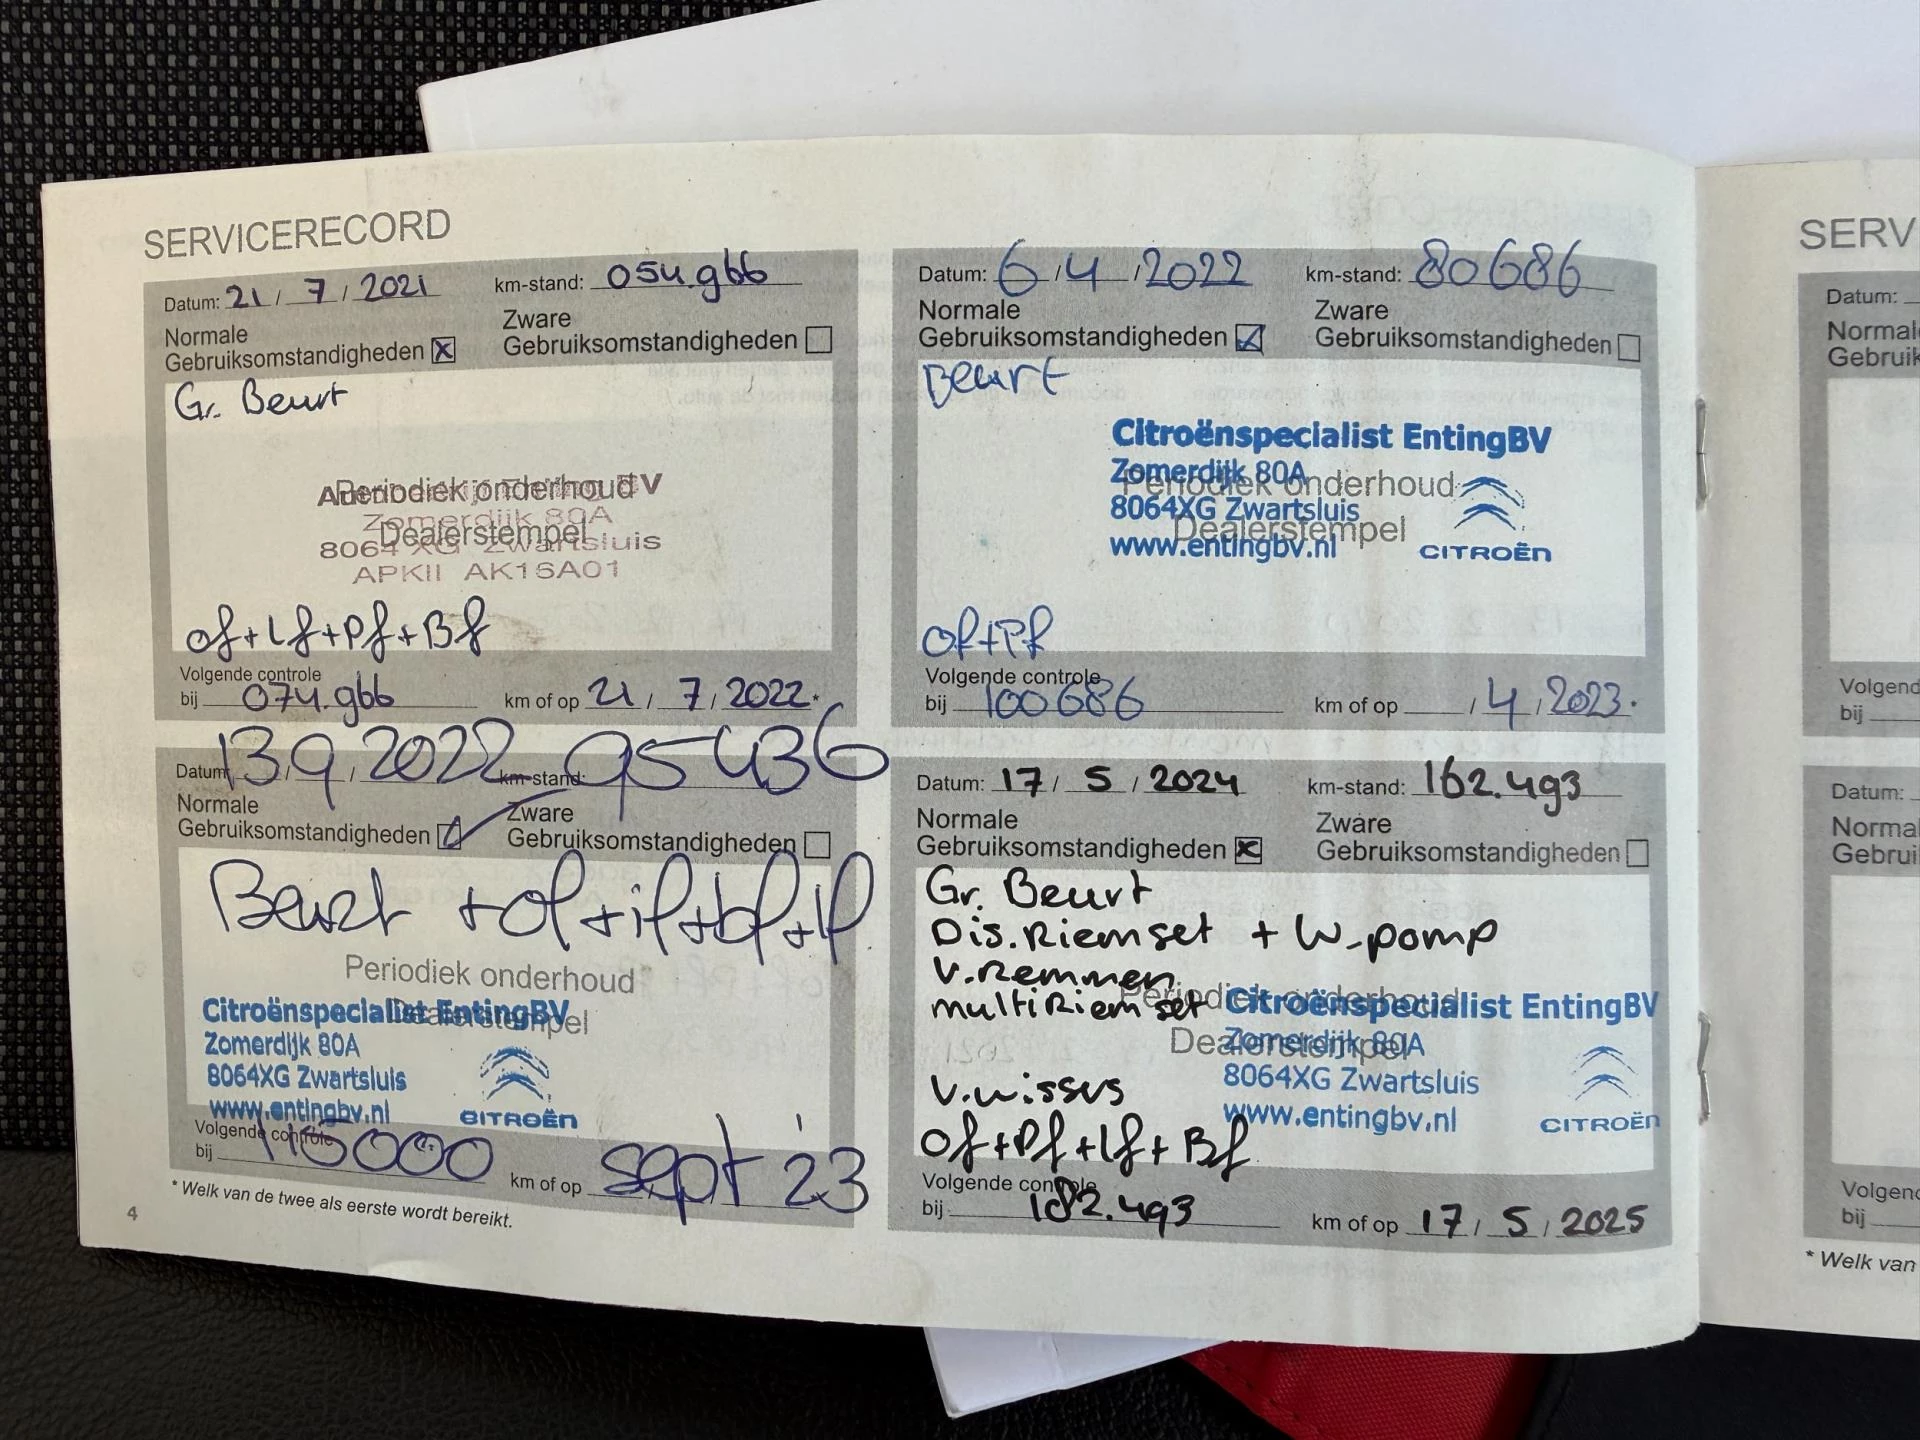 SERVICERECORD
Datum: 21 / 7 / 2021 km-stand: 054.966
Normale
Gebruiksomstandigheden x
Zware
Gebruiksomstandigheden
Gr. Beurt
Periodiek onderhoud
Dealerstempel
Zomerdijk 80A
8064 XG Zwartsluis
APKII AK15A01
of+Lf+Pf+Bf
Volgende controle
bij 074.966 km of op 21 / 7 / 2022 *
Datum: 6 / 4 / 2022 km-stand: 80686
Normale
Gebruiksomstandigheden
Zware
Gebruiksomstandigheden
Beurt
Citroënspecialist EntingBV
Zomerdijk 80A
8064XG Zwartsluis
www.entingbv.nl
CITROËN
Periodiek onderhoud
Dealerstempel
Of+Pf
Volgende controle
bij 100686 km of op / 4 / 2023 *
Datum: 13 / 9 / 2022 km-stand: 95436
Normale
Gebruiksomstandigheden
Zware
Gebruiksomstandigheden
Beurt +of+if+bf+lf
Periodiek onderhoud
Dealerstempel
Citroënspecialist EntingBV
Zomerdijk 80A
8064XG Zwartsluis
www.entingbv.nl
CITROËN
Volgende controle
bij 115000 km of op sept '23
* Welk van de twee als eerste wordt bereikt.
4
Datum: 17 / 5 / 2024 km-stand: 162.493
Normale
Gebruiksomstandigheden x
Zware
Gebruiksomstandigheden
Gr. Beurt
Dis.Riemset + W-pomp
V.Remmen
multiRiem set
Periodiek onderhoud
Dealerstempel
Citroënspecialist EntingBV
Zomerdijk 80A
8064XG Zwartsluis
www.entingbv.nl
CITROËN
V.wissers
Of+Pf+Lf+Bf
Volgende controle
bij 182.493 km of op 17 / 5 / 2025
SERV
Datum:
Normale
Gebruik
Volgend
bij
Datum:
Normal
Gebrui
Volgen
bij
* Welk van